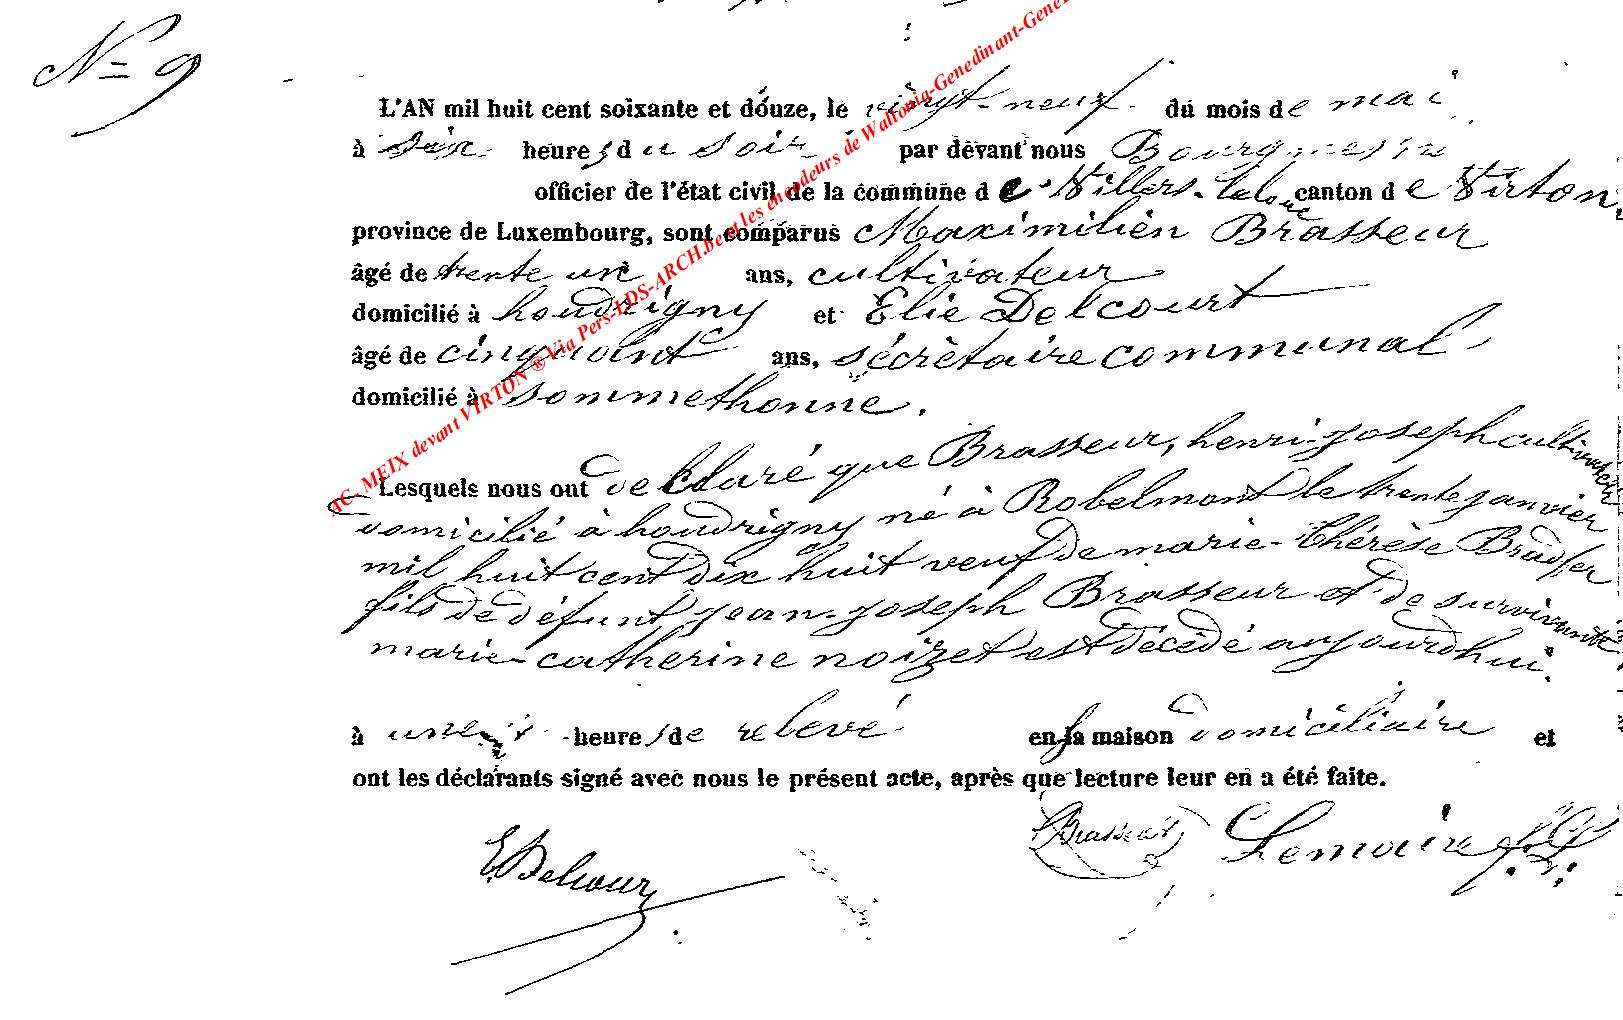 N= 9
L'AN mil huit cent soixante et douze, le vingt-neuf du mois de mai
à six heures du soir par devant nous Bourgmestre
officier de l'état civil de la commune de Villers-laloue canton de Virton,
province de Luxembourg, sont comparus Maximilien Brasseur
âgé de trente un ans, cultivateur
domicilié à houdrigny et Elie Delcourt
âgé de cinquant ans, sécrètaire communal
domicilié à sommethonne.
Lesquels nous ont declaré que Brasseur, henri-joseph cultivateur
domicilié à houdrigny né à Robelmont le trente janvier
mil huit cent dix huit veuf de marie-thérèse
fils de défunt jean-joseph Brasseur et de survivante
marie-catherine noizet est décédé aujourdhui.
à une heures de relevé en sa maison domiciliaire et
ont les déclarants signé avec nous le présent acte, après que lecture leur en a été faite.
E Delcour Brasseur Lemaire
TC-MEIX devant VIRTON ® Via Pers-LDS-ARCH.be et les encodeurs de Wallonia-Genedinant-Gene